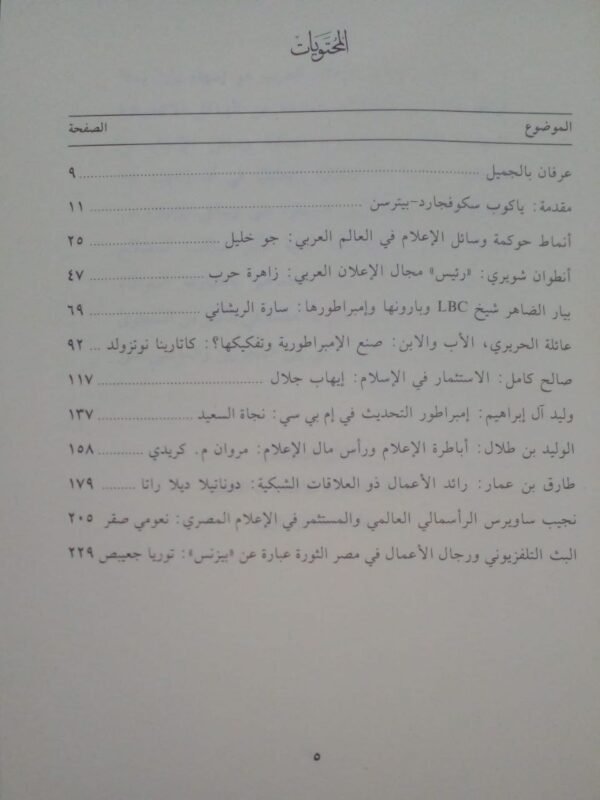 المحتويات
الموضوع الصفحة
عرفان بالجميل ٩
مقدمة: ياكوب سكوفجارد-بيترسن ١١
أنماط حوكمة وسائل الإعلام في العالم العربي: جو خليل ٢٥
أنطوان شويري: «رئيس» مجال الإعلان العربي: زاهرة حرب ٤٧
بيار الضاهر شيخ LBC وبارونها وإمبراطورها: سارة الريشاني ٦٩
عائلة الحريري، الأب والابن: صنع الإمبراطورية وتفكيكها؟: كاتارينا نوتزولد ... ٩٢
صالح كامل: الاستثمار في الإسلام: إيهاب جلال ١١٧
وليد آل إبراهيم: إمبراطور التحديث في إم بي سي: نجاة السعيد ١٣٧
الوليد بن طلال: أباطرة الإعلام ورأس مال الإعلام: مروان م. كريدي ١٥٨
طارق بن عمار: رائد الأعمال ذو العلاقات الشبكية: دوناتيلا ديلا راتا ١٧٩
نجيب ساويرس الرأسمالي العالمي والمستثمر في الإعلام المصري: نعومي صقر ٢٠٥
البث التلفزيوني ورجال الأعمال في مصر الثورة عبارة عن «بيزنس»: توريا جعيبص ٢٢٩
٥